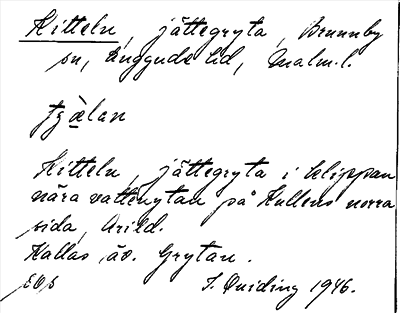 Kitteln, jättegryta, Brunnby
sn, Luggude hd, Malm.l.
tȝèlan
Kitteln, jättegryta i klippan
nära vattenytan på Kullens norra
sida, Arild.
Kallas äv. Grytan.
I. Quiding 1946.